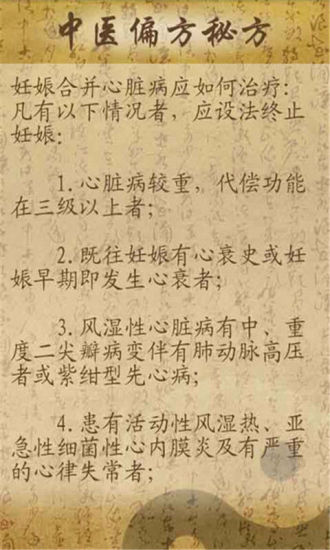 中医偏方秘方
妊娠合并心脏病应如何治疗:
凡有以下情况者，应设法终止
妊娠:
1.心脏病较重，代偿功能
在三级以上者;
2.既往妊娠有心衰史或妊
娠早期即发生心衰者;
3.风湿性心脏病有中、重
度二尖瓣病变伴有肺动脉高压
者或紫绀型先心病;
4.患有活动性风湿热、亚
急性细菌性心内膜炎及有严重
的心律失常者;